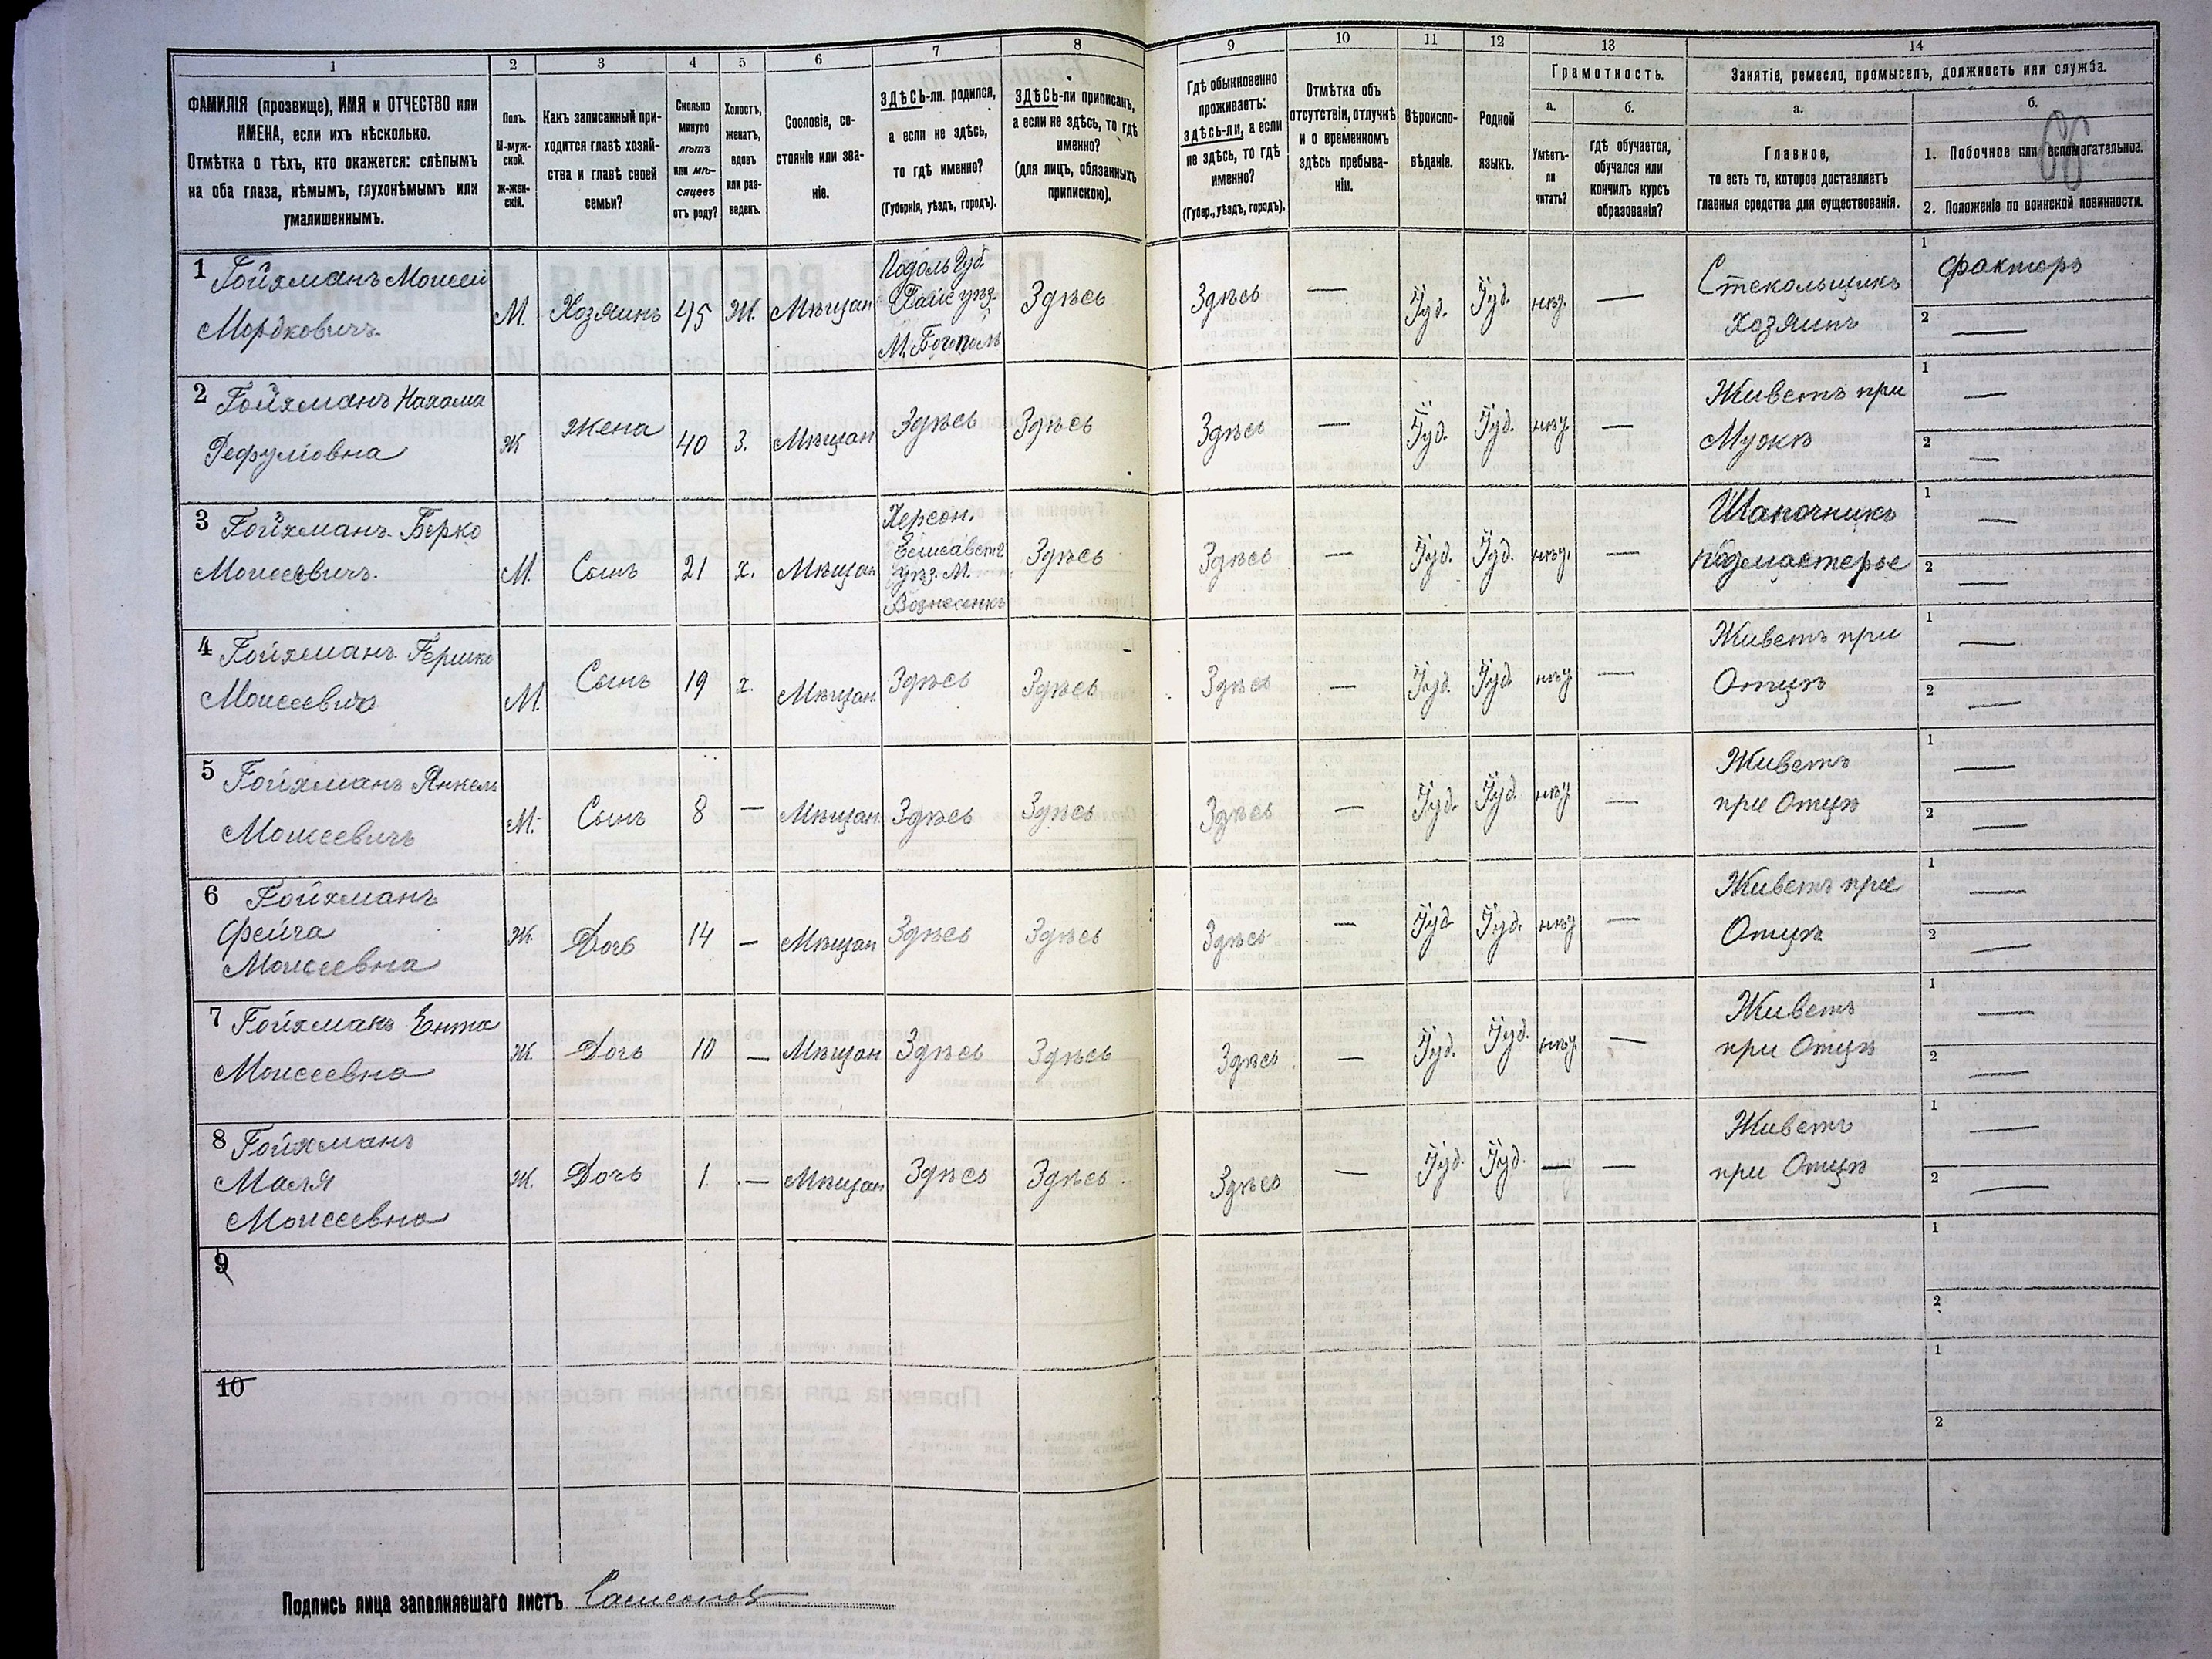 1 2 3 4 5 6 7 8 9 10 11 12 13 14
ФАМИЛІЯ (прозвище), ИМЯ и ОТЧЕСТВО или
ИМЕНА, если ихъ нѣсколько.
Отмѣтка о тѣхъ, кто окажется: слѣпымъ
на оба глаза, нѣмымъ, глухонѣмымъ или
умалишеннымъ.
Полъ.
М-муж-
ской.
Ж-жен-
скій.
Какъ записанный при-
ходится главѣ хозяй-
ства и главѣ своей
семьи?
Сколько
минуло
лѣтъ
или мѣ-
сяцевъ
отъ роду?
Холостъ,
женатъ,
вдовъ
или раз-
веденъ.
Сословіе, со-
стояніе или зва-
ніе.
ЗДѢСЬ-ли родился,
а если не здѣсь,
то гдѣ именно?
(Губернія, уѣздъ, городъ).
ЗДѢСЬ-ли приписанъ,
а если не здѣсь, то гдѣ
именно?
(для лицъ, обязанныхъ
припискою).
Гдѣ обыкновенно
проживаетъ:
здѣсь-ли, а если
не здѣсь, то гдѣ
именно?
(Губер., уѣздъ, городъ).
Отмѣтка объ
отсутствіи, отлучкѣ
и о временномъ
здѣсь пребыва-
ніи.
Вѣроиспо-
вѣданіе.
Родной
языкъ.
Грамотность.
а.
Умѣетъ-
ли
читать?
б.
Гдѣ обучается,
обучался или
кончилъ курсъ
образованія?
Занятіе, ремесло, промыселъ, должность или служба.
а.
Главное,
то есть то, которое доставляетъ
главныя средства для существованія.
б.
1. Побочное или вспомогательное.
2. Положеніе по воинской повинности.
1 Гойхманъ Моисей
Мордковичъ
М.
Хозяинъ
45
Ж.
Мѣщан
Подоль Губ.
М. Богополь
Здѣсь
Здѣсь
—
Іуд.
Іуд.
нѣт
—
Стекольщикъ
хозяинъ
1 факторъ
2 —
2 Гойхманъ Нахама
Рефуліовна
Ж
Жена
40
З.
Мѣщан
Здѣсь
Здѣсь
Здѣсь
—
Іуд.
Іуд.
нѣт
—
Живетъ при
Мужѣ
1 —
2 —
3 Гойхманъ Берко
Моисеевичъ.
М.
Сынъ
21
х.
Мѣщан
Херсон.
Елисаветг
уѣз. М.
Вознесенкъ
Здѣсь
Здѣсь
—
Іуд.
Іуд.
нѣт
—
Шапочникъ
подмастерье
1 —
2 —
4 Гойхманъ Гершко
Моисеевичъ
М.
Сынъ
19
х.
Мѣщан
Здѣсь
Здѣсь
Здѣсь
—
Іуд.
Іуд.
нѣт
—
Живетъ при
Отцѣ
1 —
2 —
5 Гойхманъ Янкель
Моисеевичъ
М.
Сынъ
8
—
Мѣщан
Здѣсь
Здѣсь
Здѣсь
—
Іуд.
Іуд.
нѣт
—
Живетъ
при Отцѣ
1 —
2 —
6 Гойхманъ
Фейга
Моисеевна
Ж.
Дочь
14
—
Мѣщан
Здѣсь
Здѣсь
Здѣсь
—
Іуд.
Іуд.
нѣт
—
Живетъ при
Отцѣ
1 —
2 —
7 Гойхманъ Ента
Моисеевна
Ж.
Дочь
10
—
Мѣщан
Здѣсь
Здѣсь
Здѣсь
—
Іуд.
Іуд.
нѣт
—
Живетъ
при Отцѣ
1 —
2 —
8 Гойхманъ
Маля
Моисеевна
Ж.
Дочь
1
—
Мѣщан
Здѣсь
Здѣсь
Здѣсь
—
Іуд.
Іуд.
—
—
Живетъ
при Отцѣ
1 —
2 —
9
1
2
10
1
2
Подпись лица заполнявшаго листъ